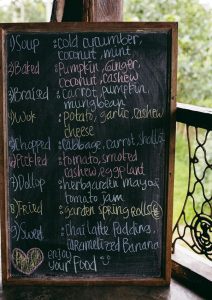 1) Soup : cold cucumber,
coconut, mint
2) Baked : Pumpkin, Ginger,
coconut, cashew
3) Braised : Carrot, pumpkin,
mungbean
4) Wok : Potato, garlic, cashew
cheese
5) Chopped : Cabbage, carrot, shallot
6) Pickled : tomato, smoked
cashew, eggplant
7) Dollop : herb garlic mayo &
tomato jam
8) Fried : garden spring rolls
9) Sweet : Chai latte Pudding,
caramelized Banana
enjoy
your Food